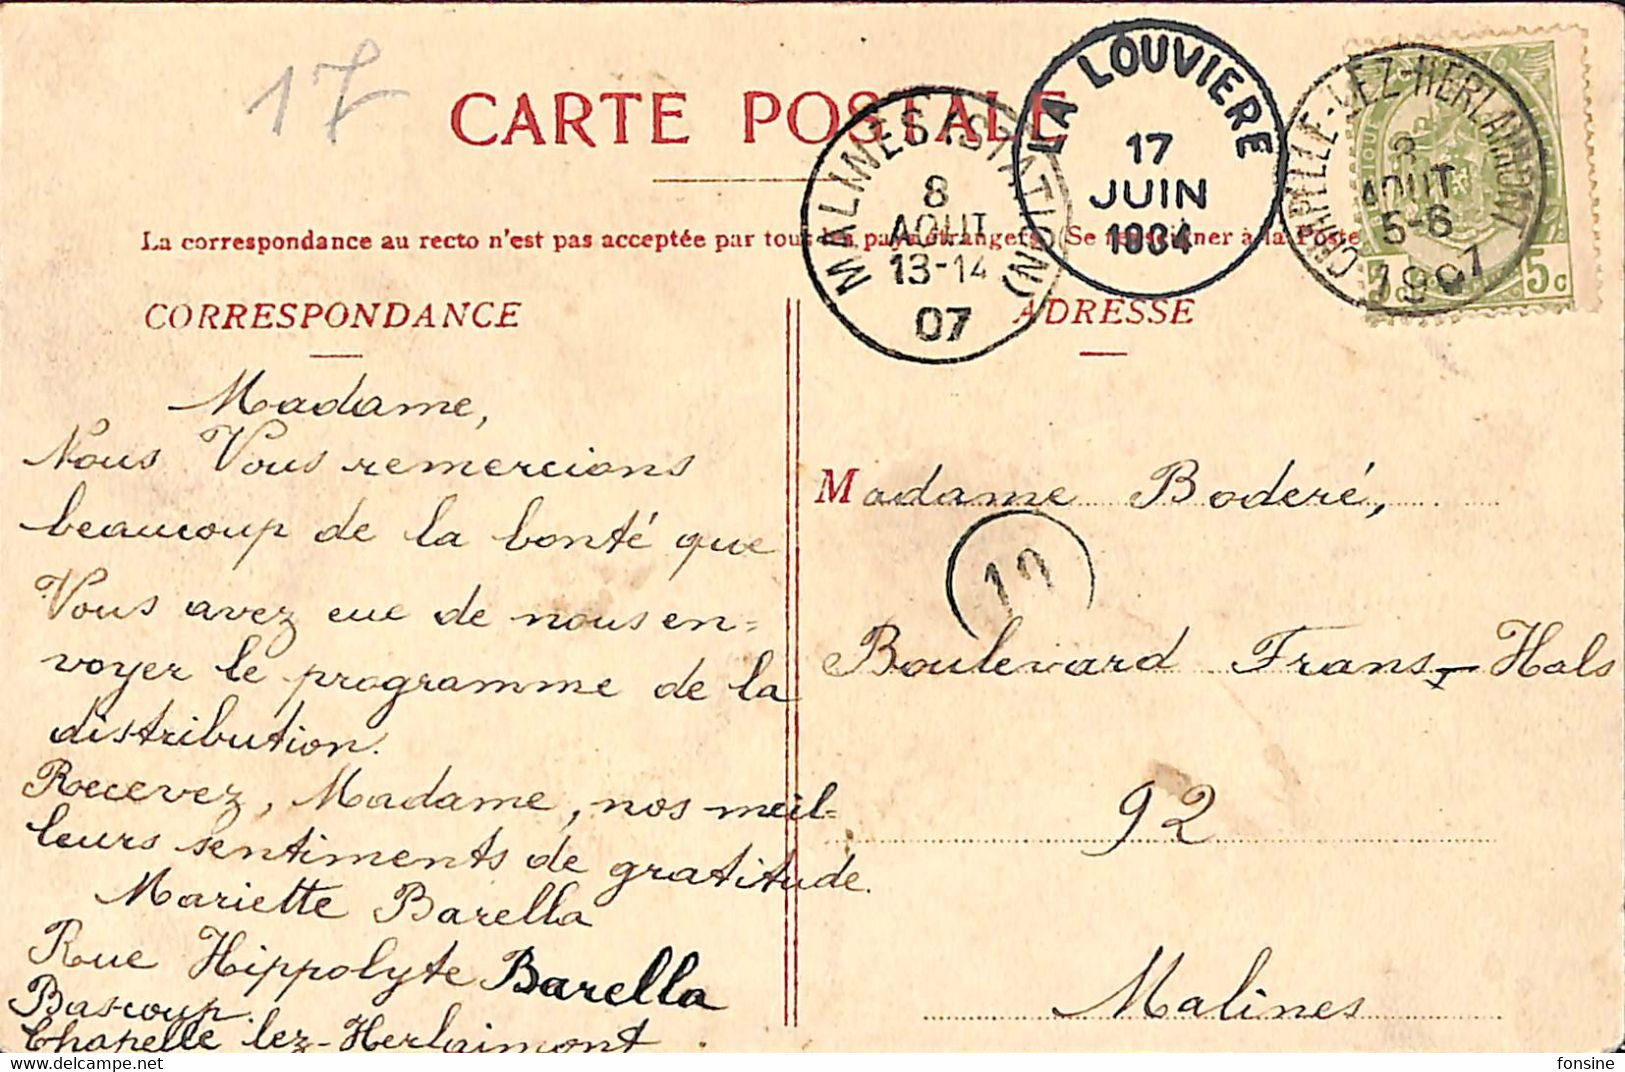 17
CARTE POSTALE
MALINES (STATION)
8
AOUT
13-14
07
LA LOUVIERE
17
JUIN
1984
CHAPELLE-LEZ-HERLAIMONT
8
AOUT
5-6
1907
5c
La correspondance au recto n'est pas acceptée par tous les pays étrangers. (Se renseigner à la Poste
CORRESPONDANCE
Madame,
Nous Vous remercions
beaucoup de la bonté que
Vous avez eue de nous en=
voyer le programme de la
distribution.
Recevez, Madame, nos meil=
leurs sentiments de gratitude.
Mariette Barella
Rue Hippolyte Barella
Bascoup.
Chapelle lez-Herlaimont.
ADRESSE
Madame Boderé,
10
Boulevard Frans-Hals
92
Malines
fonsine